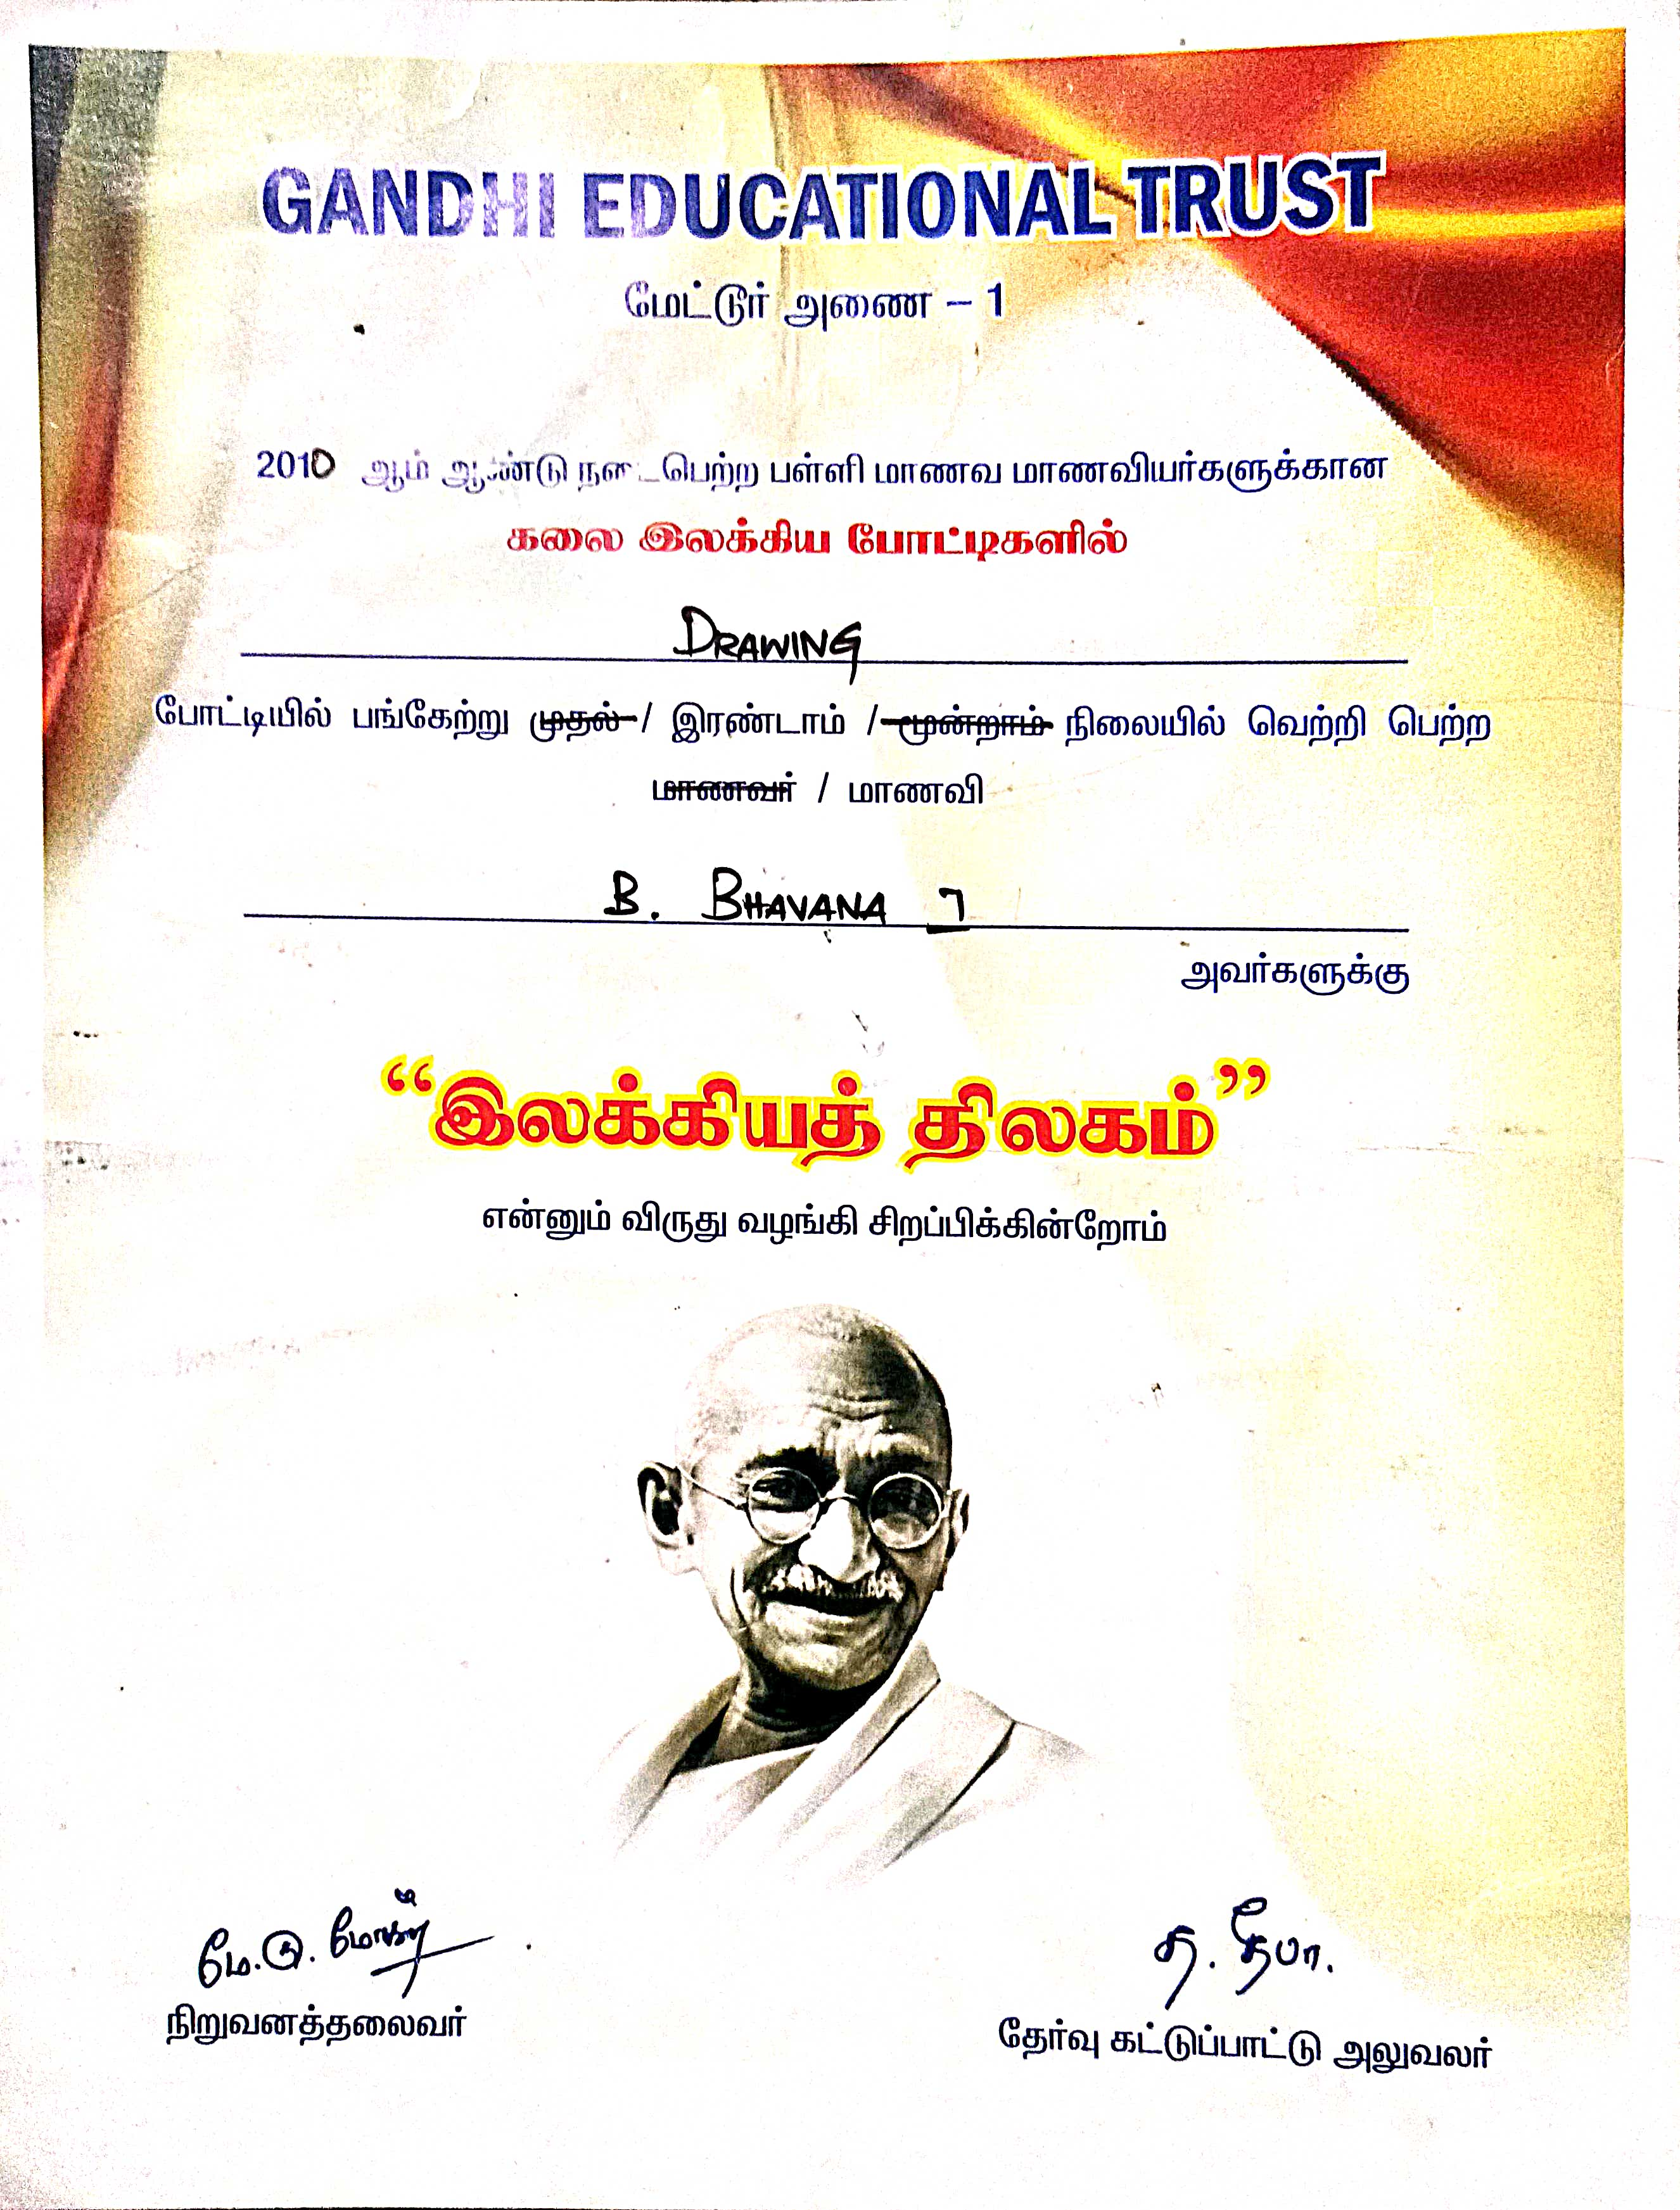 GANDHI EDUCATIONAL TRUST
மேட்டூர் அணை – 1
2010 ஆம் ஆண்டு நடைபெற்ற பள்ளி மாணவ மாணவியர்களுக்கான
கலை இலக்கிய போட்டிகளில்
DRAWING
போட்டியில் பங்கேற்று முதல் / இரண்டாம் / மூன்றாம் நிலையில் வெற்றி பெற்ற
மாணவர் / மாணவி
B. BHAVANA
அவர்களுக்கு
“இலக்கியத் திலகம்”
என்னும் விருது வழங்கி சிறப்பிக்கின்றோம்
த. தீபா.
நிறுவனத்தலைவர்
தேர்வு கட்டுப்பாட்டு அலுவலர்